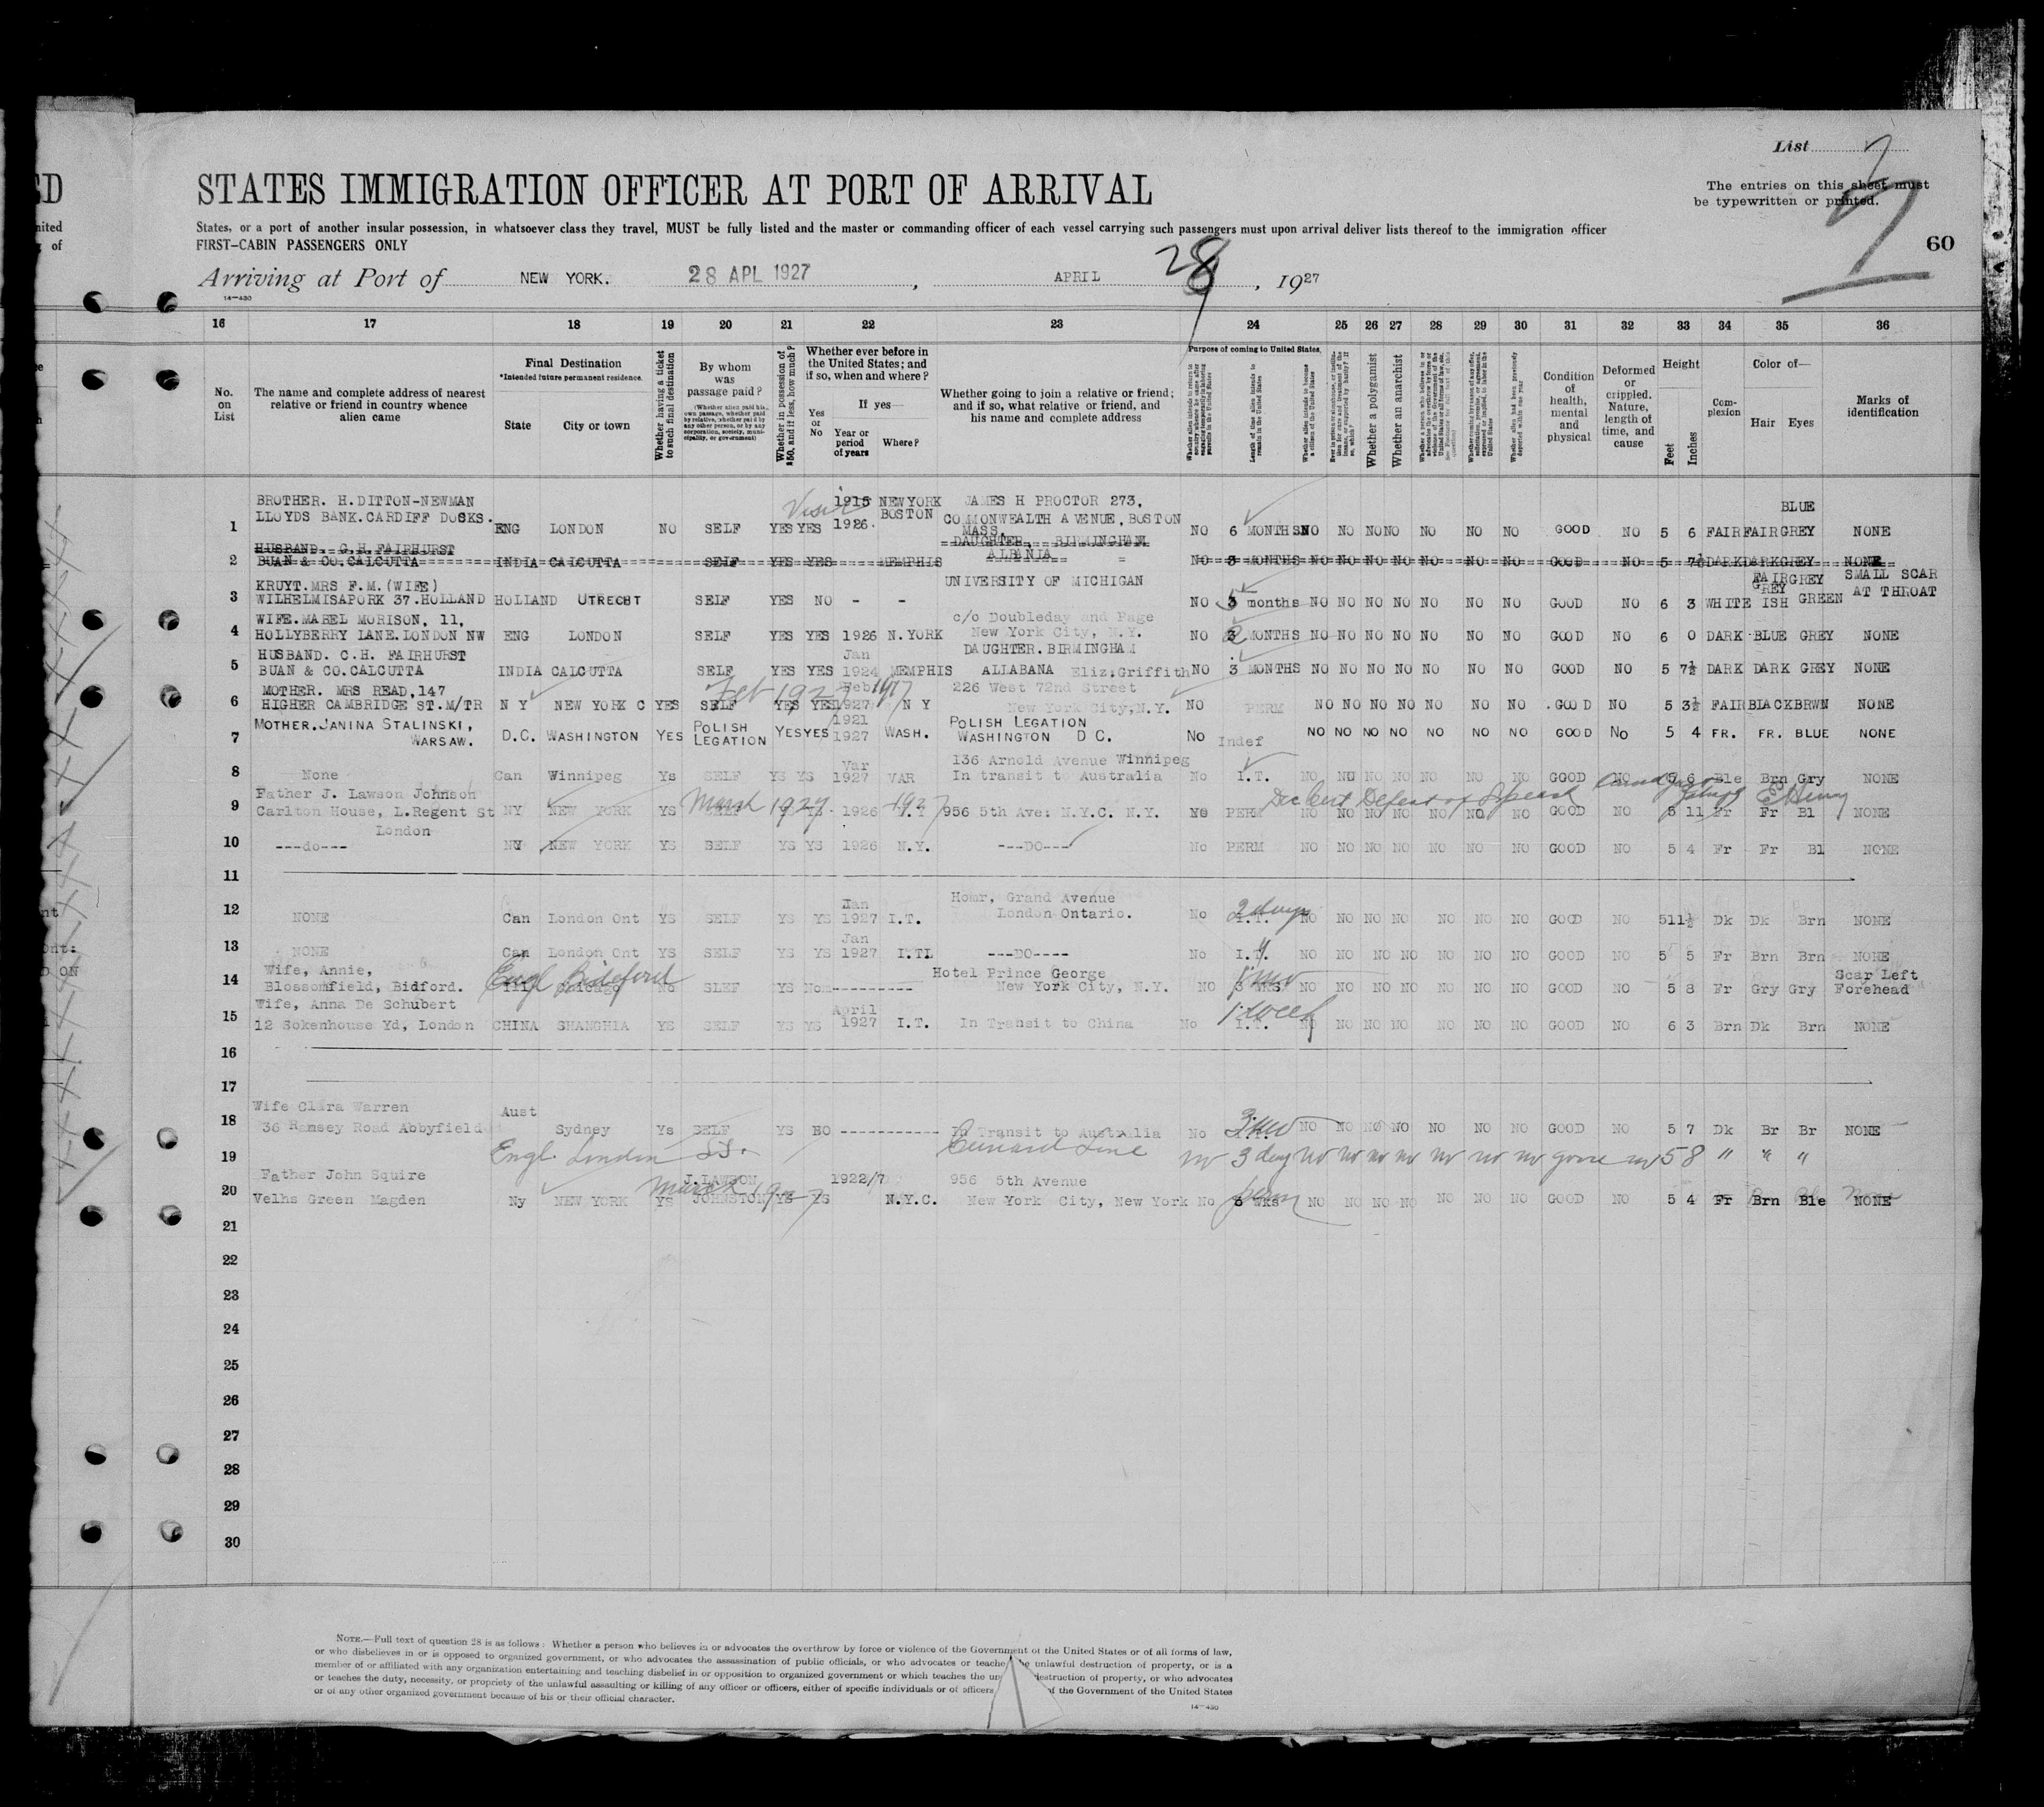 List
The entries on this sheet must
be typewritten or printed.
60
ED
STATES IMMIGRATION OFFICER AT PORT OF ARRIVAL
States, or a port of another insular possession, in whatsoever class they travel, MUST be fully listed and the master or commanding officer of each vessel carrying such passengers must upon arrival deliver lists thereof to the immigration officer
FIRST-CABIN PASSENGERS ONLY
Arriving at Port of NEW YORK. 28 APL 1927, APRIL 28, 1927
14—430
16 17 18 19 20 21 22 23 24 25 26 27 28 29 30 31 32 33 34 35 36
No. on List
The name and complete address of nearest relative or friend in country whence alien came
Final Destination
*Intended future permanent residence.
State City or town
Whether having a ticket to such final destination
By whom was passage paid?
(Whether alien paid his own passage, whether paid by relative, whether paid by any other person, or by any corporation, society, municipality, or government)
Whether in possession of $50, and if less, how much?
Whether ever before in the United States; and if so, when and where?
Yes or No
If yes—
Year or period of years
Where?
Whether going to join a relative or friend; and if so, what relative or friend, and his name and complete address
Purpose of coming to United States
Length of time alien intends to remain in the United States
Whether a polygamist
Whether an anarchist
Condition of health, mental and physical
Deformed or crippled. Nature, length of time, and cause
Height
Feet Inches
Complexion
Color of—
Hair Eyes
Marks of identification
BROTHER. H. DITTON-NEWMAN 1915 NEWYORK JAMES H PROCTOR 273, BLUE
LLOYDS BANK. CARDIFF DOSKS. Visit BOSTON COMMONWEALTH AVENUE, BOSTON
1 ENG LONDON NO SELF YES YES 1926. MASS, NO 6 MONTHS NO NO NO NO NO NO NO GOOD NO 5 6 FAIR FAIR GREY NONE
HUSBAND. C.H. FAIRHURST DAUGHTER, BIRMINGHAM
2 BUAN & CO. CALCUTTA INDIA CALCUTTA SELF YES YES MEMPHIS ALBANIA NO 3 MONTHS NO NO NO NO NO NO NO GOOD NO 5 7½ DARK DARK GREY NONE
KRUYT. MRS F.M. (WIFE) UNIVERSITY OF MICHIGAN FAIR GREY SMALL SCAR
3 WILHELMISAPORK 37. HOLLAND HOLLAND UTRECHT SELF YES NO - - NO 3 months NO NO NO NO NO NO NO GOOD NO 6 3 WHITE GREY ISH GREEN AT THROAT
WIFE. MABEL MORISON, 11, c/o Doubleday and Page
4 HOLLYBERRY LANE. LONDON NW ENG LONDON SELF YES YES 1926 N.YORK New York City, N.Y. NO 3 MONTHS NO NO NO NO NO NO NO GOOD NO 6 0 DARK BLUE GREY NONE
HUSBAND. C.H. FAIRHURST Jan DAUGHTER. BIRMINGHAM
5 BUAN & CO. CALCUTTA INDIA CALCUTTA SELF YES YES 1924 MEMPHIS ALLABANA Eliz: Griffith NO 3 MONTHS NO NO NO NO NO NO NO GOOD NO 5 7½ DARK DARK GREY NONE
MOTHER. MRS READ, 147 Feb 1927 Feb 226 West 72nd Street
6 HIGHER CAMBRIDGE ST. M/TR N Y NEW YORK C YES SELF YES YES 1927 N Y New York City, N.Y. NO PERM NO NO NO NO NO NO NO GOOD NO 5 3½ FAIR BLACK BRWN NONE
MOTHER. JANINA STALINSKI, POLISH 1921 POLISH LEGATION
7 WARSAW. D.C. WASHINGTON YES LEGATION YES YES 1927 WASH. WASHINGTON D C. No Indef NO NO NO NO NO NO NO GOOD No 5 4 FR. FR. BLUE NONE
Var 136 Arnold Avenue Winnipeg
8 None Can Winnipeg Ys SELF YS YS 1927 VAR In transit to Australia No I.T. NO NO NO NO NO NO NO GOOD NO 5 6 Ble Brn Gry NONE
Father J. Lawson Johnson March 1927 1927
9 Carlton House, L. Regent St NY NEW YORK YS SELF YS YS 1926 N.Y 956 5th Ave: N.Y.C. N.Y. No PERM NO NO NO NO NO NO NO GOOD NO 5 11 Fr Fr Bl NONE
London
10 ---do--- NY NEW YORK YS SELF YS YS 1926 N.Y. ---DO--- No PERM NO NO NO NO NO NO NO GOOD NO 5 4 Fr Fr Bl NONE
11
Jan Homr, Grand Avenue
12 NONE Can London Ont YS SELF YS YS 1927 I.T. London Ontario. No I.T. 2 days NO NO NO NO NO NO NO GOOD NO 5 11½ Dk Dk Brn NONE
Jan
13 NONE Can London Ont YS SELF YS YS 1927 I.TL ---DO---- No I.T. NO NO NO NO NO NO NO GOOD NO 5 5 Fr Brn Brn NONE
Wife, Annie, Engl Bideford Hotel Prince George Scar Left
14 Blossomfield, Bidford. Ill, Chicago No SLEF YS Non--------- New York City, N.Y. NO 3 WKS 1 mo NO NO NO NO NO NO NO GOOD NO 5 8 Fr Gry Gry Forehead
Wife, Anna De Schubert April
15 12 Sokenhouse Yd, London CHINA SHANGHIA YS SELF YS YS 1927 I.T. In Transit to China No I.T. 1 week NO NO NO NO NO NO NO GOOD NO 6 3 Brn Dk Brn NONE
16
17
Wife Clara Warren Aust
18 36 Ramsey Road Abbyfield Sydney Ys SELF YS NO ----------- In Transit to Australia No I.T. NO NO NO NO NO NO NO GOOD NO 5 7 Dk Br Br NONE
19 Engl. London Cunard Line no 3 day no no no no no no no good no 5 8 " " "
Father John Squire March 1927 J. LAWSON 1922/7 956 5th Avenue
20 Velhs Green Magden Ny NEW YORK YS JOHNSTON YS YS N.Y.C. New York City, New York No 6 WKS perm NO NO NO NO NO NO NO GOOD NO 5 4 Fr Brn Ble NONE
21
22
23
24
25
26
27
28
29
30
NOTE.—Full text of question 28 is as follows: Whether a person who believes in or advocates the overthrow by force or violence of the Government of the United States or of all forms of law,
or who disbelieves in or is opposed to organized government, or who advocates the assassination of public officials, or who advocates or teaches the unlawful destruction of property, or is a
member of or affiliated with any organization entertaining and teaching disbelief in or opposition to organized government or which teaches the destruction of property, or who advocates
or teaches the duty, necessity, or propriety of the unlawful assaulting or killing of any officer or officers, either of specific individuals or of officers of the Government of the United States
or of any other organized government because of his or their official character.
14—430